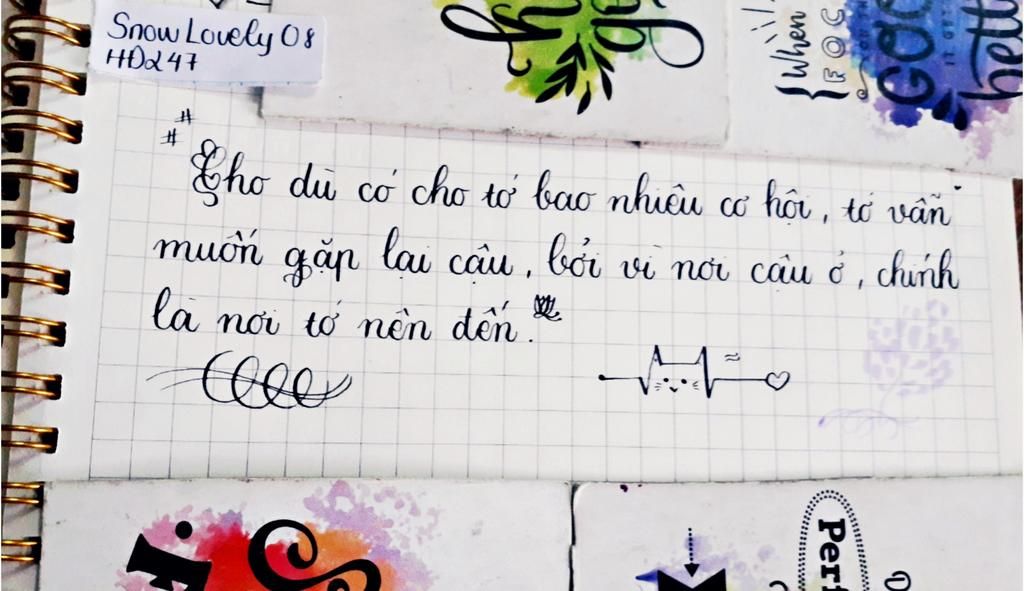 Snow Lovely 08
HĐ247
##
Cho dù có cho tớ bao nhiêu cơ hội, tớ vẫn
muốn gặp lại cậu, bởi vì nơi cậu ở, chính
là nơi tớ nên đến.
When
FOC
GOO
bett
Perf